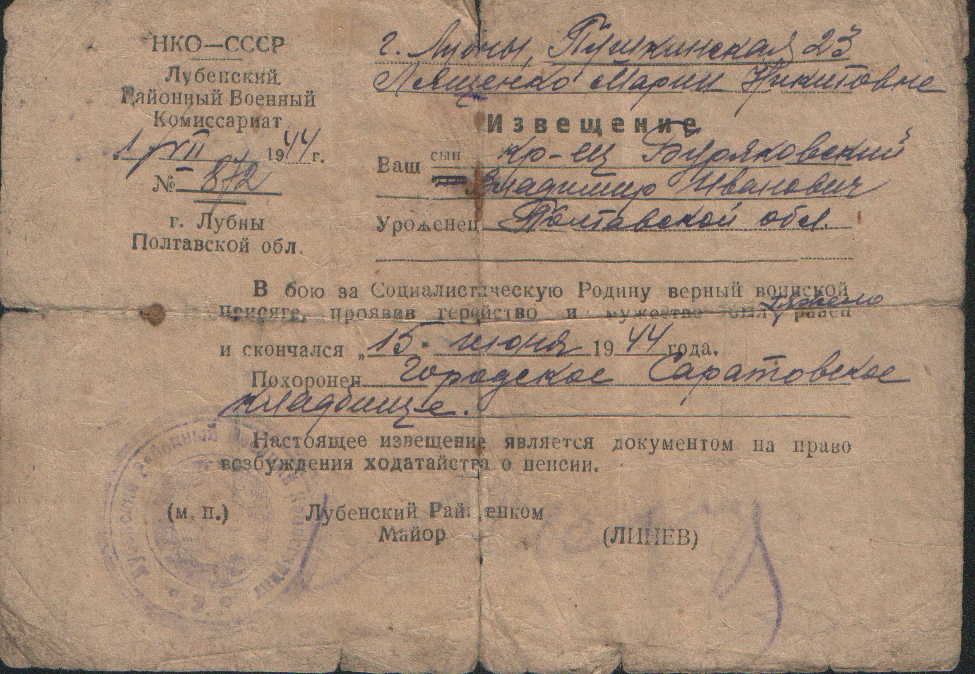 НКО—СССР
Лубенский
Районный Военный
Комиссариат
1/VII 1944 г.
№ 872
г. Лубны
Полтавской обл.
г. Лубны, Пушкинская 23
Лященко Марии Никитовне
Извещение
Ваш сын кр-ец Буряковский
Владимир Иванович
Уроженец Полтавской обл.
В бою за Социалистическую Родину верный воинской
присяге, проявив геройство и мужество был тяжело ранен
и скончался „15" июня 1944 года.
Похоронен Городское Саратовское
кладбище.
Настоящее извещение является документом на право
возбуждения ходатайства о пенсии.
(м. п.) Лубенский Райвоенком
Майор (ЛИНЕВ)